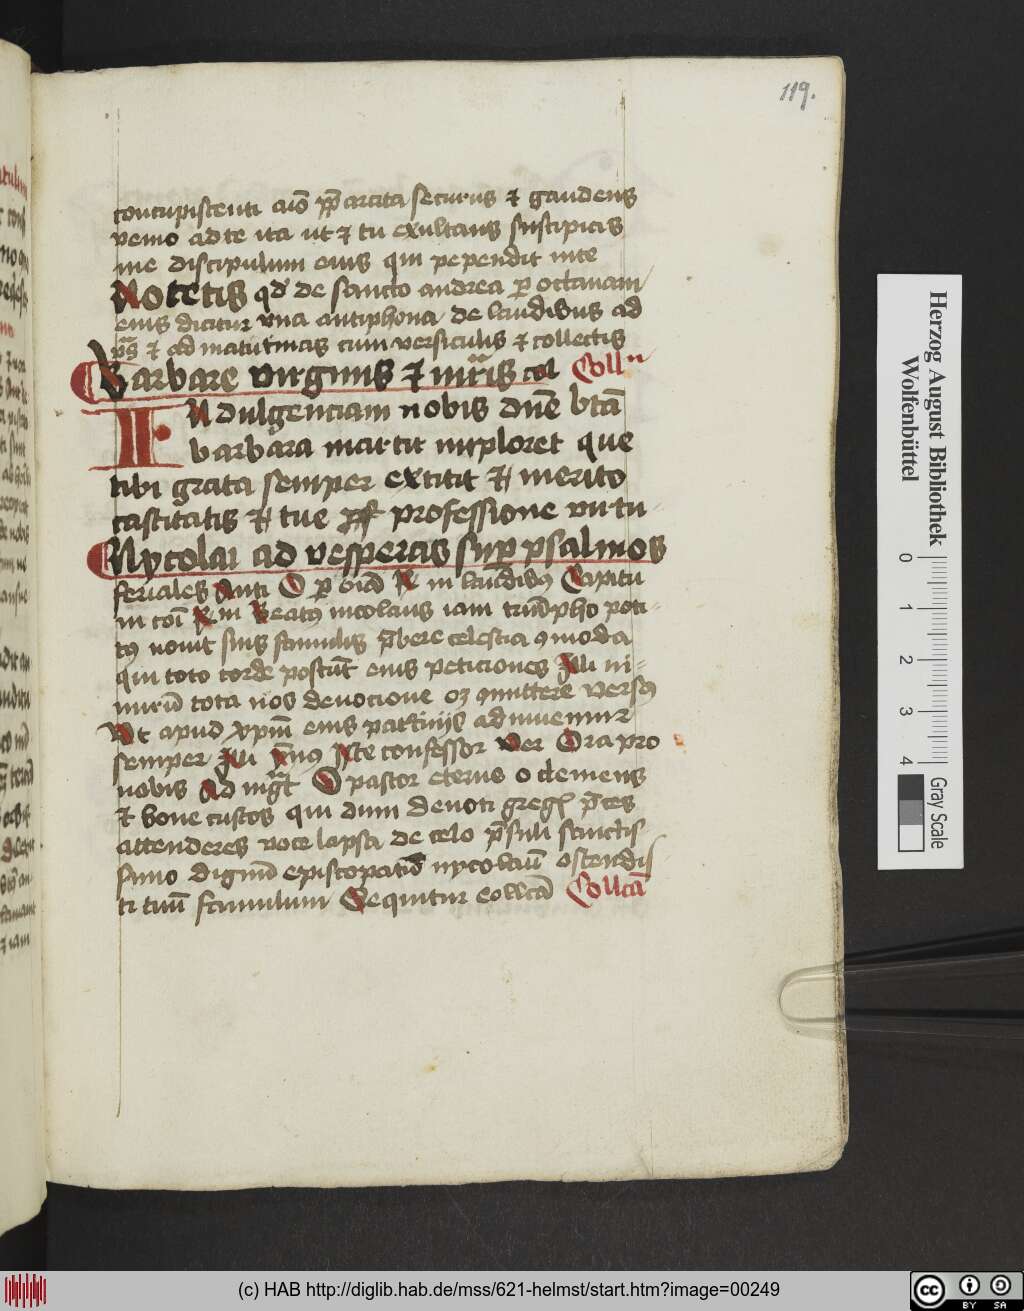 119.
concupiscenti aīo p̄p̄arata securus et gaudens
venio ad te ita ut et tu exultans suscipias
me discipulum eius qui pependit in te
Notetis qd̄ de sancto andrea p octauam
eius dicitur vna antiphona de laudibus ad
et ad matutinas cum versiculis et collectis
Barbare virginis et mr̄is col Coll
INdulgenciam nobis dn̄e btā
barbara martir imploret que
tibi grata semper extitit et merito
castitatis et tue professione virtu
Nycolai ad vesperas sup psalmos
feriales Anti O p oīd R in laudibus Capitu
in coī R m Beatus nicolaus iam triumpho poti
tus nouit suis famulis p̄bere celestia commoda
qui toto corde poscūt eius peticiones Illi ni
mirū tota nos deuocione oz committere versus
Ut apud xpm̄ eius patrocinijs adiuuemur
semper Illi ymnus Iste confessor Ver Ora pro
nobis Ad mgt̄ O pastor eterne o clemens
et bone custos qui dum deuoti greg p̄ces
attenderes voce lapsa de celo p̄suli sanctis
simo dignū episcopatu nycolaū ostendis
ti tuū famulum Sequitur collcā Collcā
Herzog August Bibliothek
Wolfenbüttel
0 1 2 3 4
Gray Scale
(c) HAB http://diglib.hab.de/mss/621-helmst/start.htm?image=00249
cc BY SA